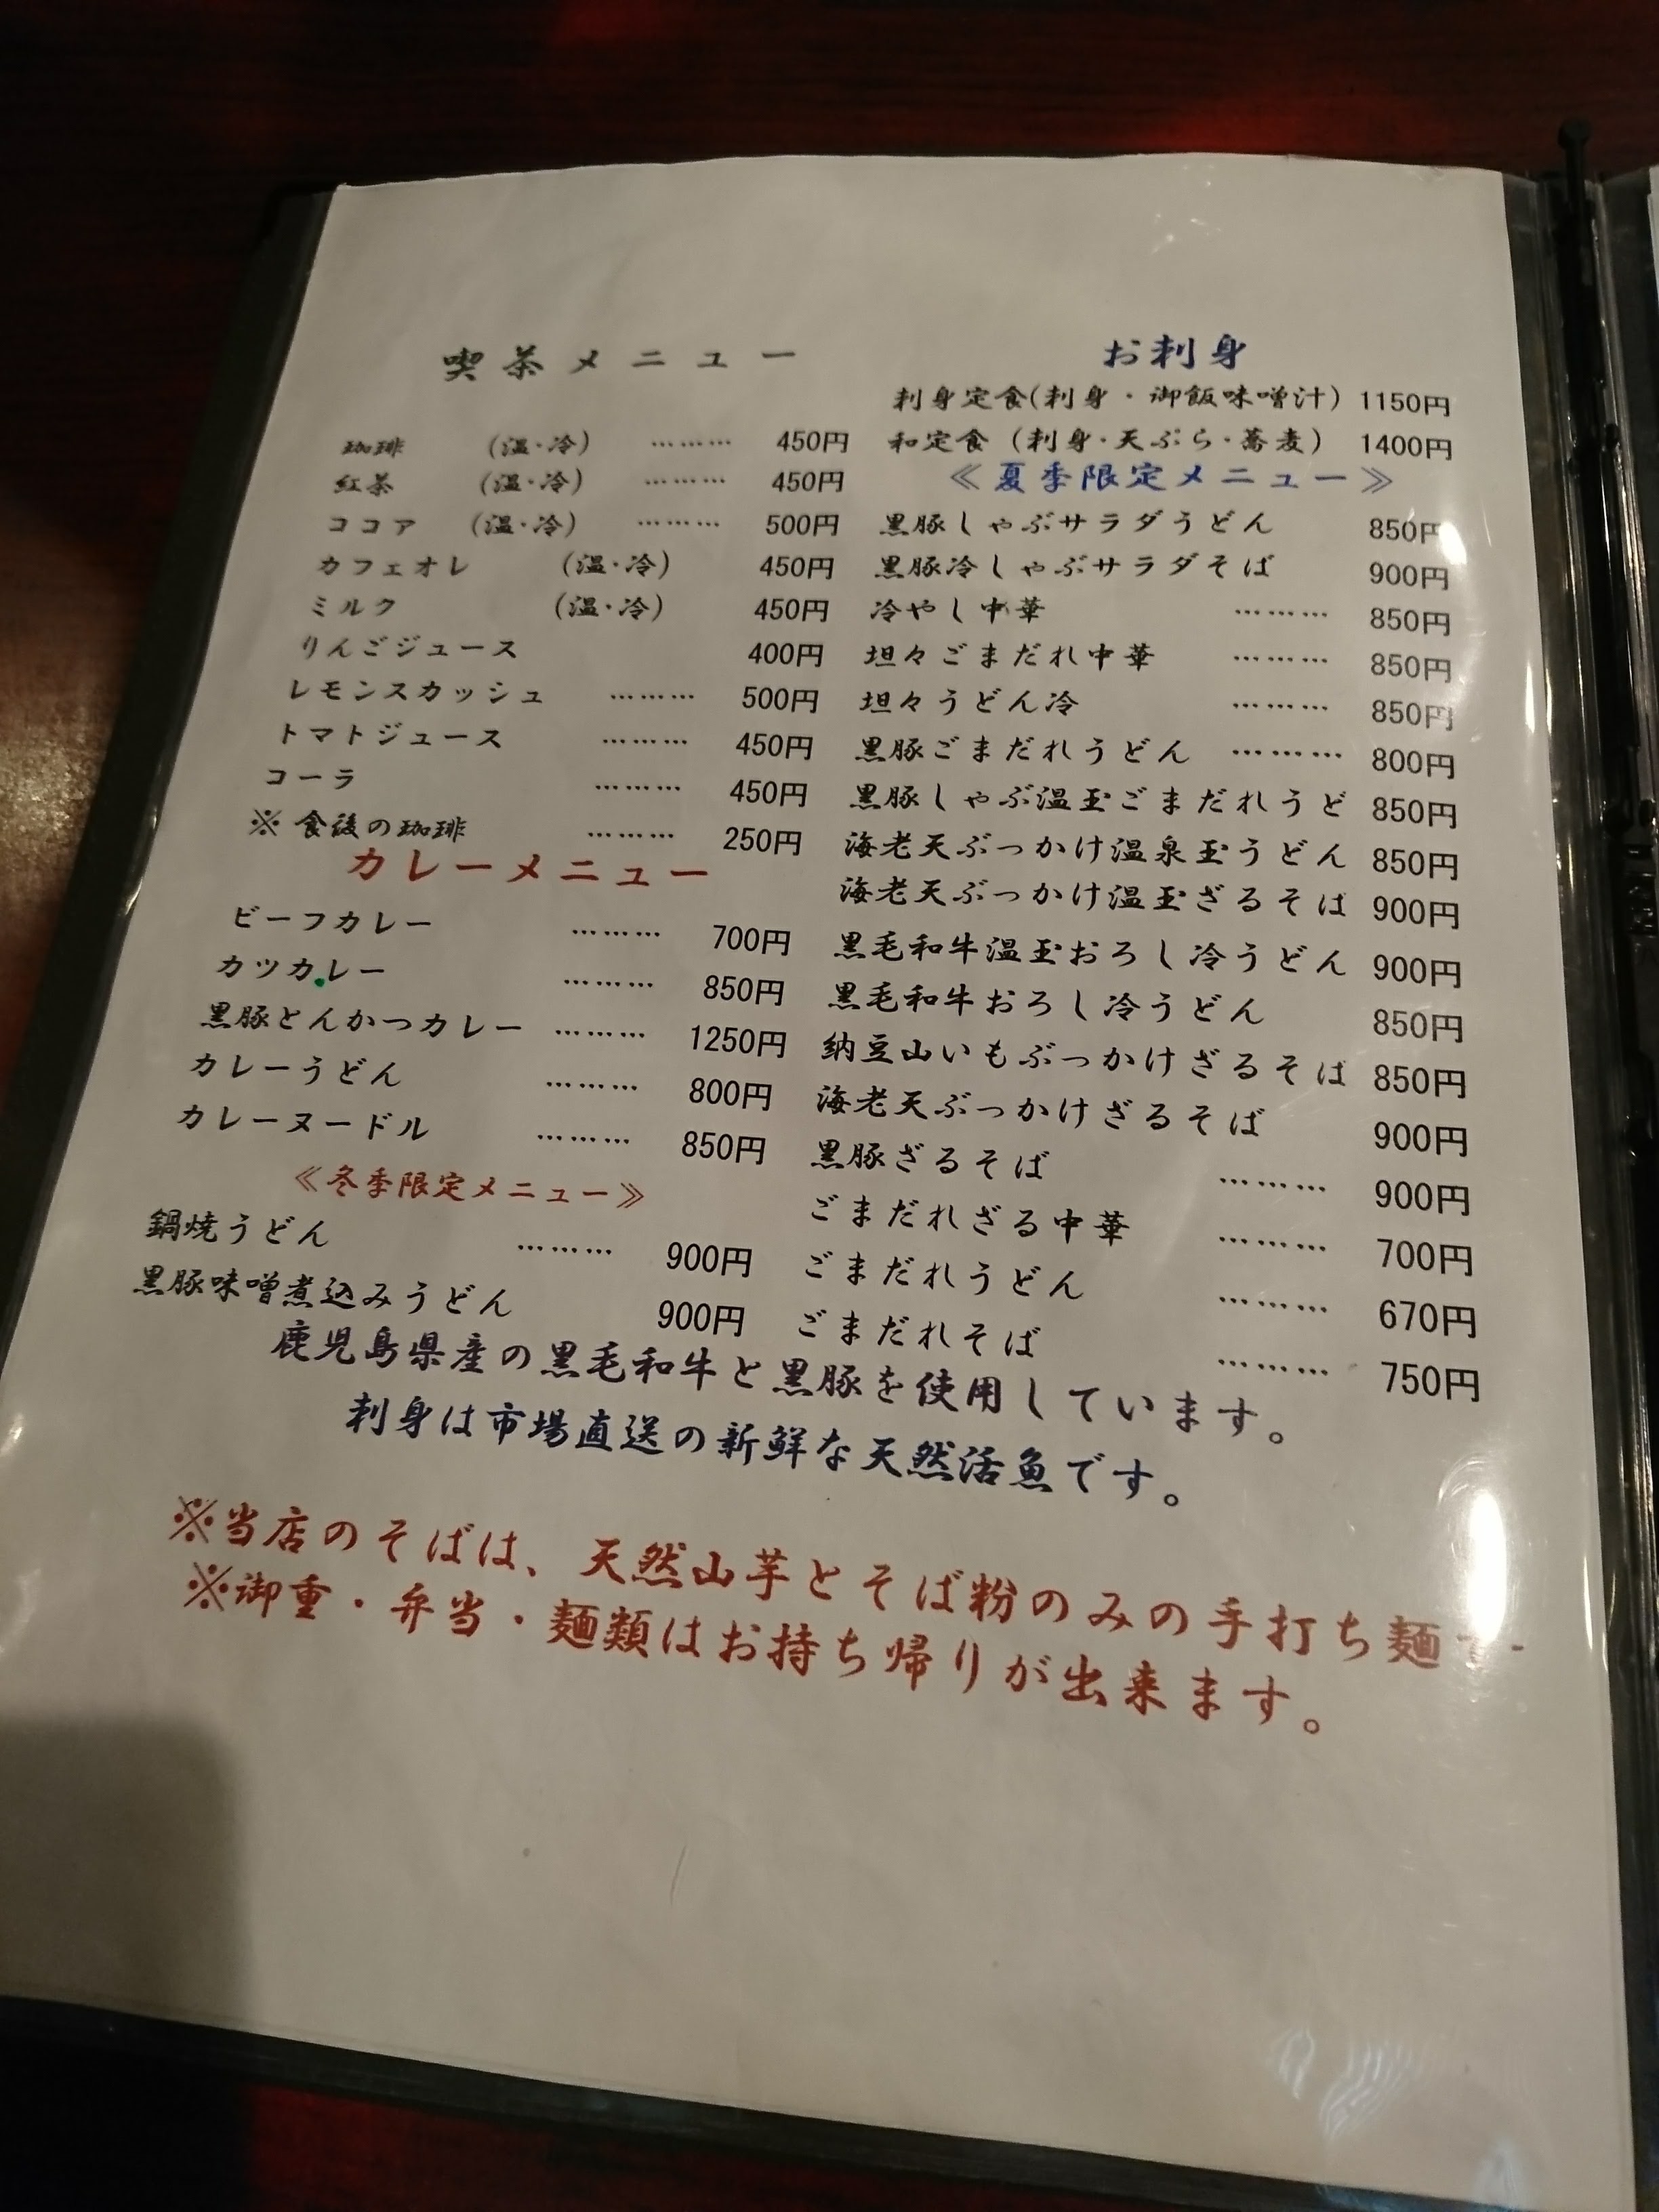 喫茶メニュー
珈琲 (温・冷) ……… 450円
紅茶 (温・冷) ……… 450円
ココア (温・冷) ……… 500円
カフェオレ (温・冷) 450円
ミルク (温・冷) 450円
りんごジュース 400円
レモンスカッシュ ……… 500円
トマトジュース ……… 450円
コーラ ……… 450円
※食後の珈琲 ……… 250円
カレーメニュー
ビーフカレー ……… 700円
カツカレー ……… 850円
黒豚とんかつカレー ……… 1250円
カレーうどん ……… 800円
カレーヌードル ……… 850円
≪冬季限定メニュー≫
鍋焼うどん ……… 900円
黒豚味噌煮込みうどん 900円
お刺身
刺身定食(刺身・御飯味噌汁) 1150円
和定食(刺身・天ぷら・蕎麦) 1400円
≪夏季限定メニュー≫
黒豚しゃぶサラダうどん 850円
黒豚冷しゃぶサラダそば 900円
冷やし中華 ……… 850円
坦々ごまだれ中華 ……… 850円
坦々うどん冷 ……… 850円
黒豚ごまだれうどん ……… 800円
黒豚しゃぶ温玉ごまだれうど 850円
海老天ぶっかけ温泉玉うどん 850円
海老天ぶっかけ温玉ざるそば 900円
黒毛和牛温玉おろし冷うどん 900円
黒毛和牛おろし冷うどん 850円
納豆山いもぶっかけざるそば 850円
海老天ぶっかけざるそば 900円
黒豚ざるそば ……… 900円
ごまだれざる中華 ……… 700円
ごまだれうどん ……… 670円
ごまだれそば ……… 750円
鹿児島県産の黒毛和牛と黒豚を使用しています。
刺身は市場直送の新鮮な天然活魚です。
※当店のそばは、天然山芋とそば粉のみの手打ち麺
※御重・弁当・麺類はお持ち帰りが出来ます。